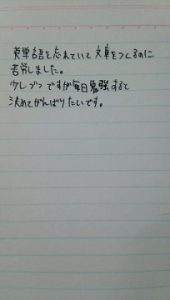 英単語を忘れていて文章をつくるのに
苦労しました。
少しづつですが毎日勉強すると
決めてがんばりたいです。